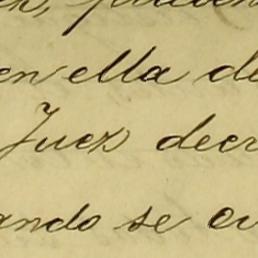 en ella de
Juez decr
ando se ev